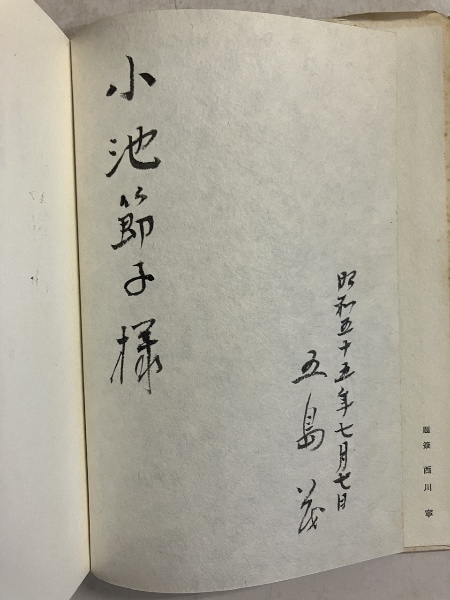 題簽 西川 寧
昭和五十五年七月七日
五島茂
小池節子様